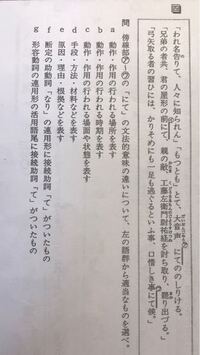 「われ名告りて、人々に知られん」「もつとも」とて、大音声にてののしりける。
「兄弟の者共、君の屋形の前にて、親の敵、工藤左衛門尉祐経を討ち取り、罷り出づる。」
「弓矢取る者の習ひには、かりそめにも一足も逃ぐるといふ事、口惜しき事にて候。」
問 傍線部㋐㋑㋒の「にて」の文法的意味の違いについて、左の語群から適当なものを選べ。
a 動作・作用の行われる場所を表す
b 動作・作用の行われる時期を表す
c 動作・作用の行われる場面や状態を表す
d 手段・方法・材料などを表す
e 原因・理由・根拠などを表す
f 断定の助動詞「なり」の連用形に接続助詞「て」がついたもの
g 形容動詞の連用形の活用語尾に接続助詞「て」がついたもの